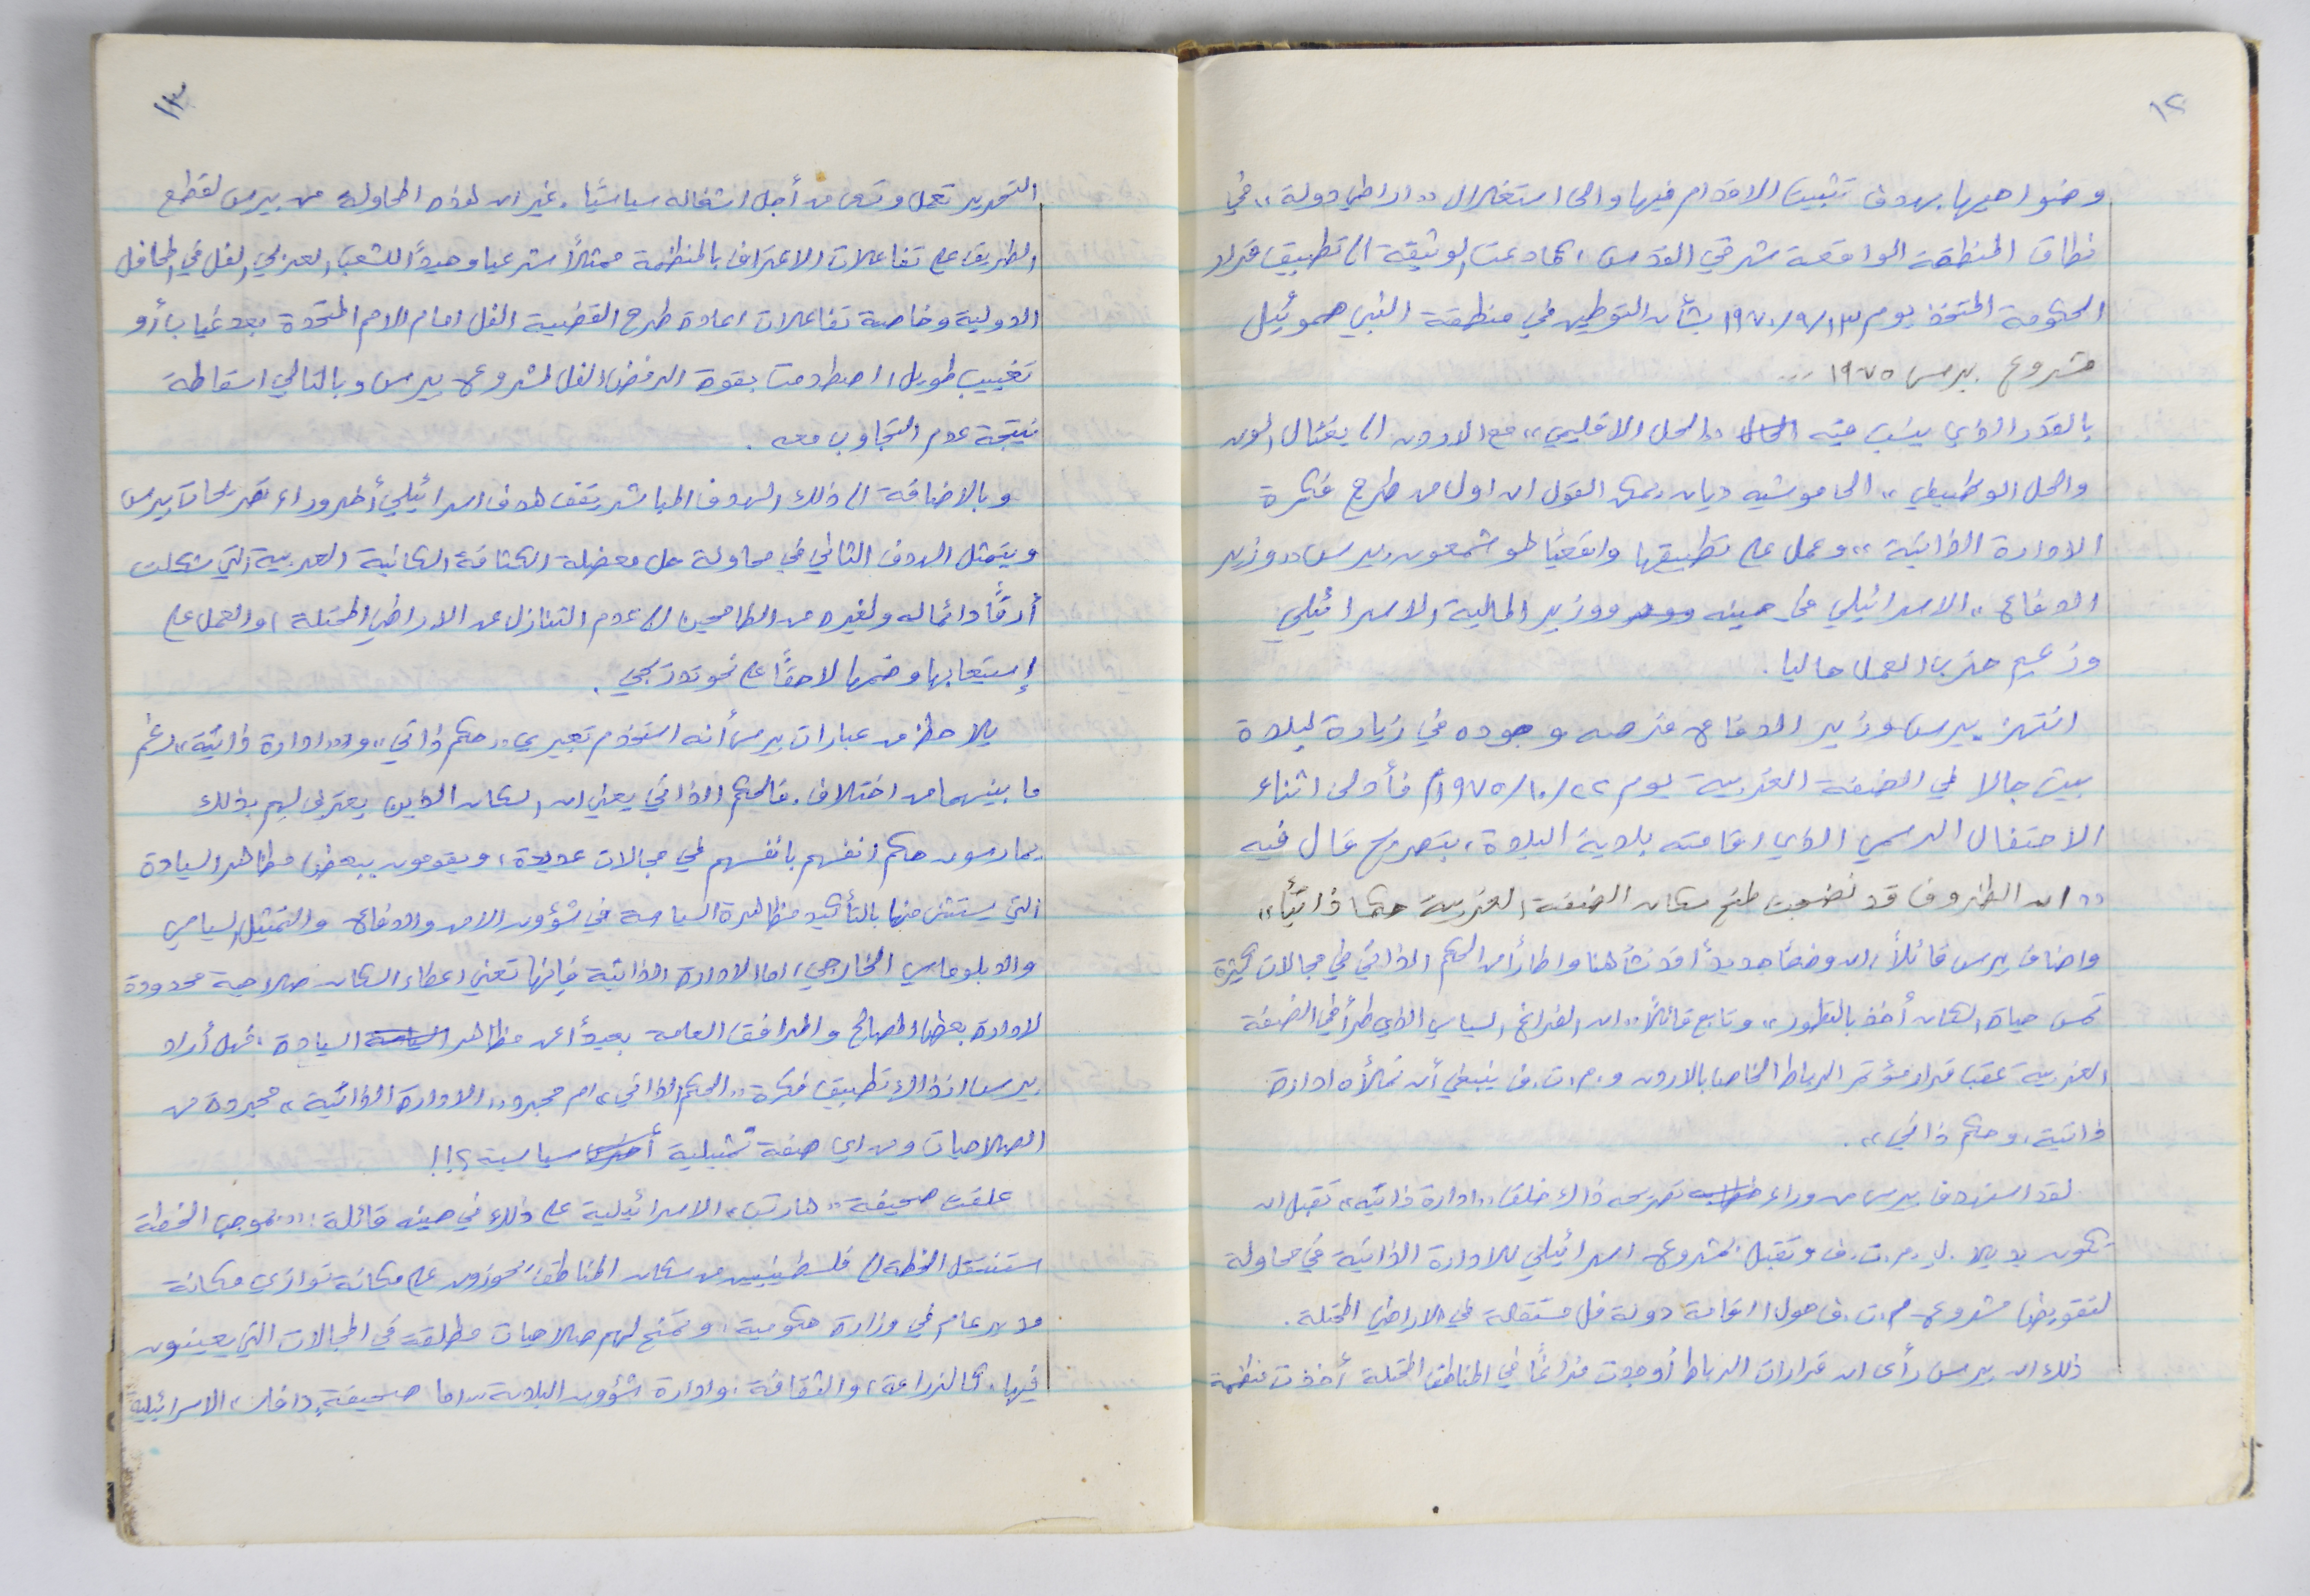 ١٢
وضواحيها بهدف تثبيت الاقدام فيها والى استغلال «اراضي دولة» في
نطاق المنطقة الواقعة شرقي القدس، كما دعت الوثيقة الى تطبيق قرار
الحكومة المتخذ يوم ١٣/٩/١٩٧٠ بشأن التوطين في منطقة النبي صموئيل
مشروع بيرس ١٩٧٥ ...
بالقدر الذي ينسب فيه «الحل الاقليمي» مع الاردن الى يغئال الون
والحل الوظيفي» الى موشيه ديان يمكن القول ان اول من طرح فكرة
الادارة الذاتية» وعمل على تطبيقها واقعيًا هو شمعون بيرس «وزير
الدفاع» الاسرائيلي في حينه ووزير المالية الاسرائيلي
وزعيم حزب العمل حاليا.
انتهز بيرس وزير الدفاع فرصه وجوده في زيارة لبلدة
بيت جالا في الضفة الغربية يوم ٢٢/١٠/١٩٧٥م فأدلى اثناء
الاحتفال الرسمي الذي اقامته بلدية البلدة، بتصريح قال فيه
«ان الظروف قد نضجت لمنح سكان الضفة الغربية حكما ذاتيًا»
واضاف بيرس قائلاً، ان وضعًا جديدًا قد نشأ هنا واطارًا من الحكم الذاتي في مجالات كثيرة
تمس حياة السكان أخذ بالتطور» وتابع قائلاً «ان الفراغ السياسي الذي طرأ في الضفة
الغربية عقب قرار مؤتمر الرباط الخاص بالاردن و م.ت.ف ينبغي أن تملأه ادارة
ذاتية، وحكم ذاتي».
لقد استهدف بيرس من وراء تصريحه ذاك خلق «ادارة ذاتية» تقبل ان
تكون بديلا لـ م.ت.ف وتقبل بمشروع اسرائيلي للادارة الذاتية في محاولة
لتقويض مشروع م.ت.ف حول اقامة دولة فل مستقلة في الاراضي المحتلة.
ذلك ان بيرس رأى ان قرارات الرباط أوجدت فراغًا في المناطق المحتلة أخذت منظمة
١٣
التحرير تعمل وتسعى من أجل اشغاله سياسيًا، غير ان هذه المحاولة من بيرس لقطع
الطريق على تفاعلات الاعتراف بالمنظمة ممثلاً شرعيا وحيدًا للشعب العربي الفل في المحافل
الدولية وخاصة تفاعلات اعادة طرح القضية الفل امام الامم المتحدة بعد غياب أو
تغييب طويل، اصطدمت بقوة الرفض الفل لمشروع بيرس وبالتالي اسقاطه
نتيجة عدم التجاوب معه.
وبالاضافة الى ذلك الهدف المباشر يقف هدف اسرائيلي أخر وراء تصريحات بيرس
ويتمثل الهدف الثاني في محاولة حل معضلة الكثافة السكانية العربية التي شكلت
أرقًا دائما له ولغيره من الطامحين الى عدم التنازل عن الاراضي المحتلة، والعمل على
إستيعابها وضمها لاحقًا على نحو تدريجي.
يلاحظ من عبارات بيرس أنه استخدم تعبيري «حكم ذاتي» و«ادارة ذاتية» رغم
ما بينهما من اختلاف، فالحكم الذاتي يعني ان السكان الذين يعترف لهم بذلك
يمارسون حكم انفسهم بانفسهم في مجالات عديدة، ويقومون ببعض مظاهر السيادة
التي يستثنى منها بالتأكيد مظاهرة السياسة في شؤون الامن والدفاع والتمثيل السياسي
والدبلوماسي الخارجي، اما الادارة الذاتية فإنها تعني اعطاء السكان صلاحية محدودة
لادارة بعض المصالح والمرافق العامة بعيدًا عن مظاهر السيادة، فهل أراد
بيرس انذاك تطبيق فكرة «الحكم الذاتي» ام مجرد «الادارة الذاتية» مجردة من
الصلاحيات ومن اي صفة تمثيلية أخرى سياسية؟!!
علقت صحيفة «هارتس» الاسرائيلية على ذلك في حينه قائلة: «بموجب الخطة
ستنتقل الخطة الى فلسطينيين من سكان المناطق يحوزون على مكانة توازي مكانة
مدير عام في وزارة حكومية، وتمنح لهم صلاحيات مطلقة في المجالات التي يعينون
فيها، كالزراعة، والثقافة، وادارة شؤون البلدية» اما صحيفة «دافار» الاسرائيلية